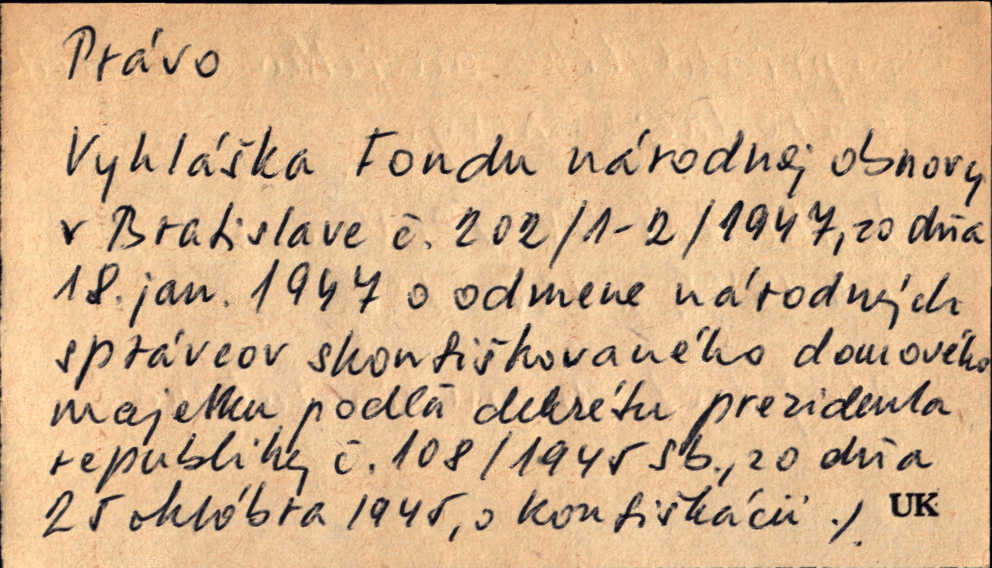 Právo
Vyhláška Fondu národnej obnovy
v Bratislave č. 202/1-2/1947, zo dňa
18. jan. 1947 o odmene národných
správcov skonfiškovaného domového
majetku podľa dekrétu prezidenta
republiky č. 108/1945 Sb., zo dňa
25 októbra 1945, o konfiškácii ./
UK